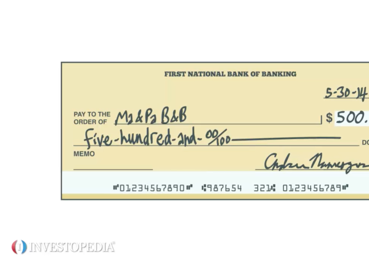 FIRST NATIONAL BANK OF BANKING
5-30-14
PAY TO THE
ORDER OF Ma & Pa B&B $ 500.
five-hundred-and- 00/100
MEMO
⑈01234567890⑈ ⑆987654 321⑆ 0123456789⑈
INVESTOPEDIA